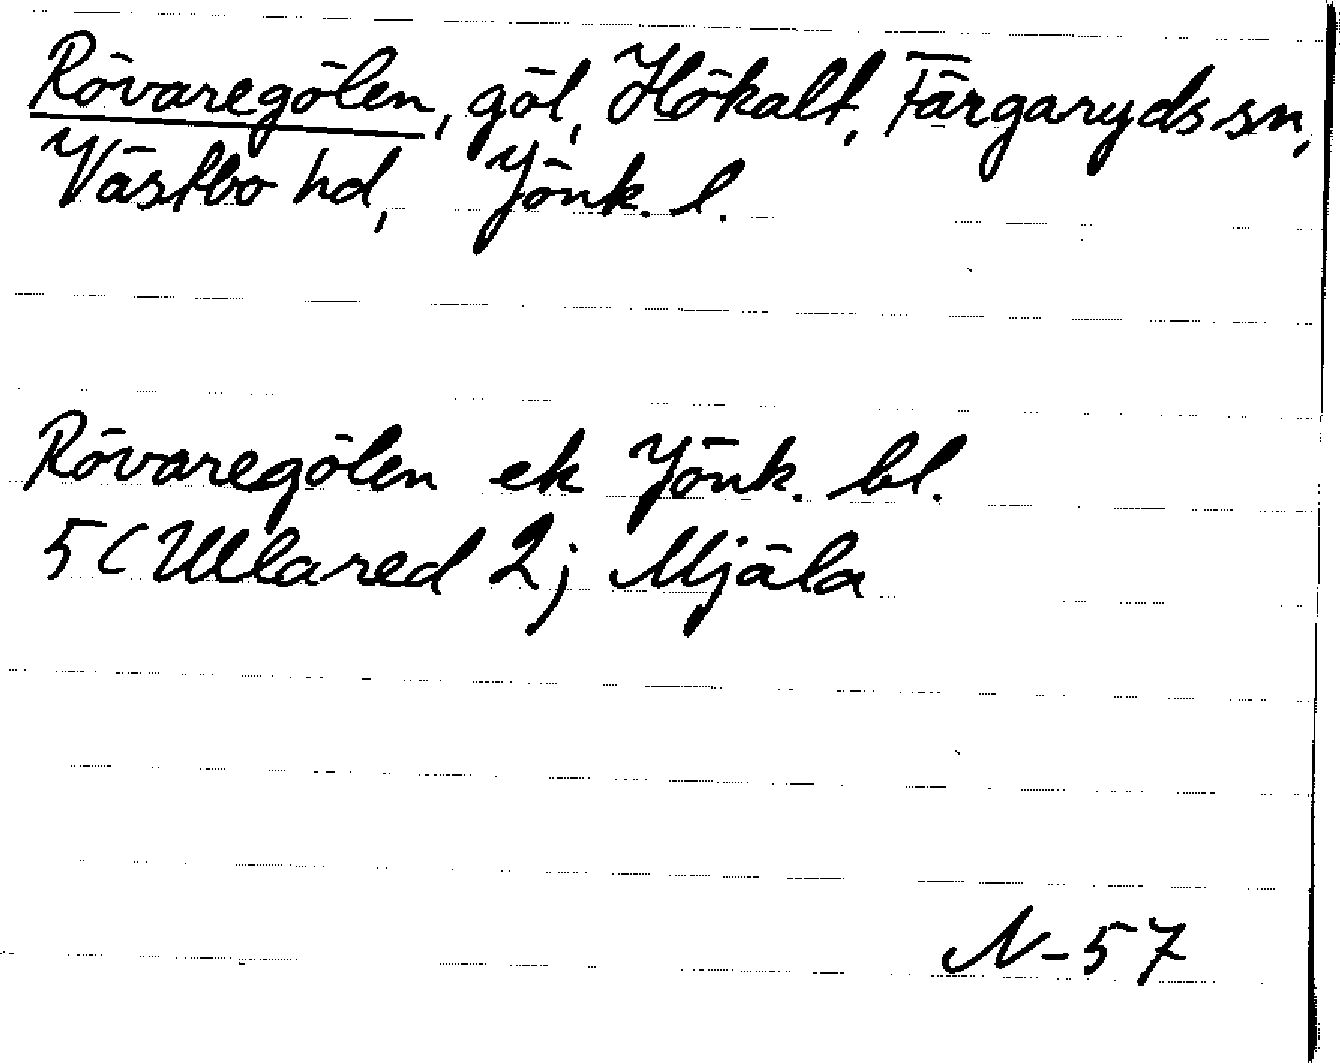 Rövaregölen, göl, Hökalt, Färgaryds sn,
Västbo hd, Jönk. l.
Rövaregölen ek Jönk. bl.
5 C Ullared 2j Mjäla
N-57